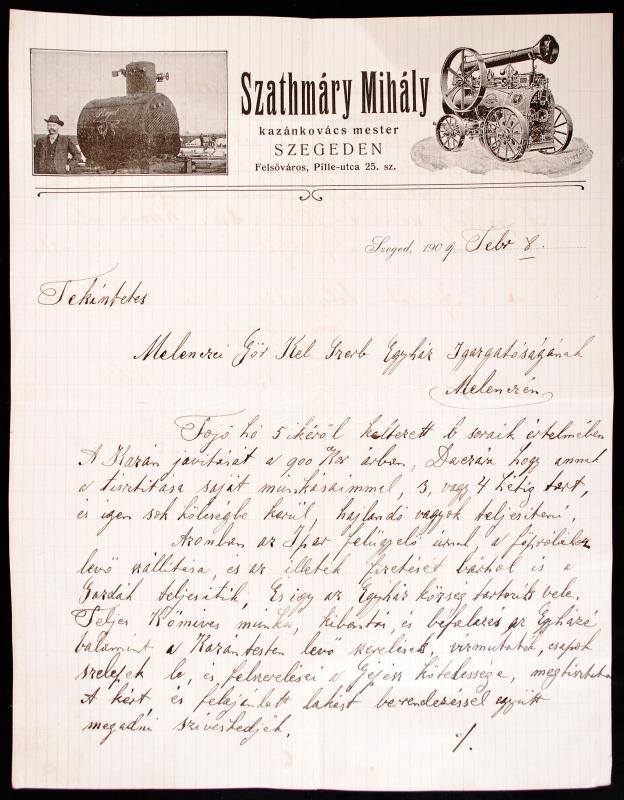 Szathmáry Mihály
kazánkovács mester
SZEGEDEN
Felsőváros, Pille-utca 25. sz.
Szeged, 1909 Febr 8.
Tekintetes
Melenczei Gör Kel Szerb Egyház Igazgatóságának
Melenczén
Fojó hó 5 ikéről keltezett b soraik értelmében
A Kazán javitását a 900 Kor árban, Daczára hogy annak
a tisztitása saját munkásaimmal, 3, vagy 4 hétig tart,
és igen sok költségbe kerül, hajlandó vagyok teljesiteni.
Azonban az Ipar felügyelő urnak a
levő szállitása, és az illeték fizetését bárhol is a
Gazdák teljesitik, És igy az Egyház község tartozik vele.
Teljes Kőmives munka, kibontás, és béfalazás az Egyházé
valamint a Kazántesten levő szerelések, vizmutatók, csapok
szelepek le, és felszerelései a Gépész kötelessége,
A kért, és felajánlott lakást berendezéssel együtt
megadni sziveskedjék.
./.